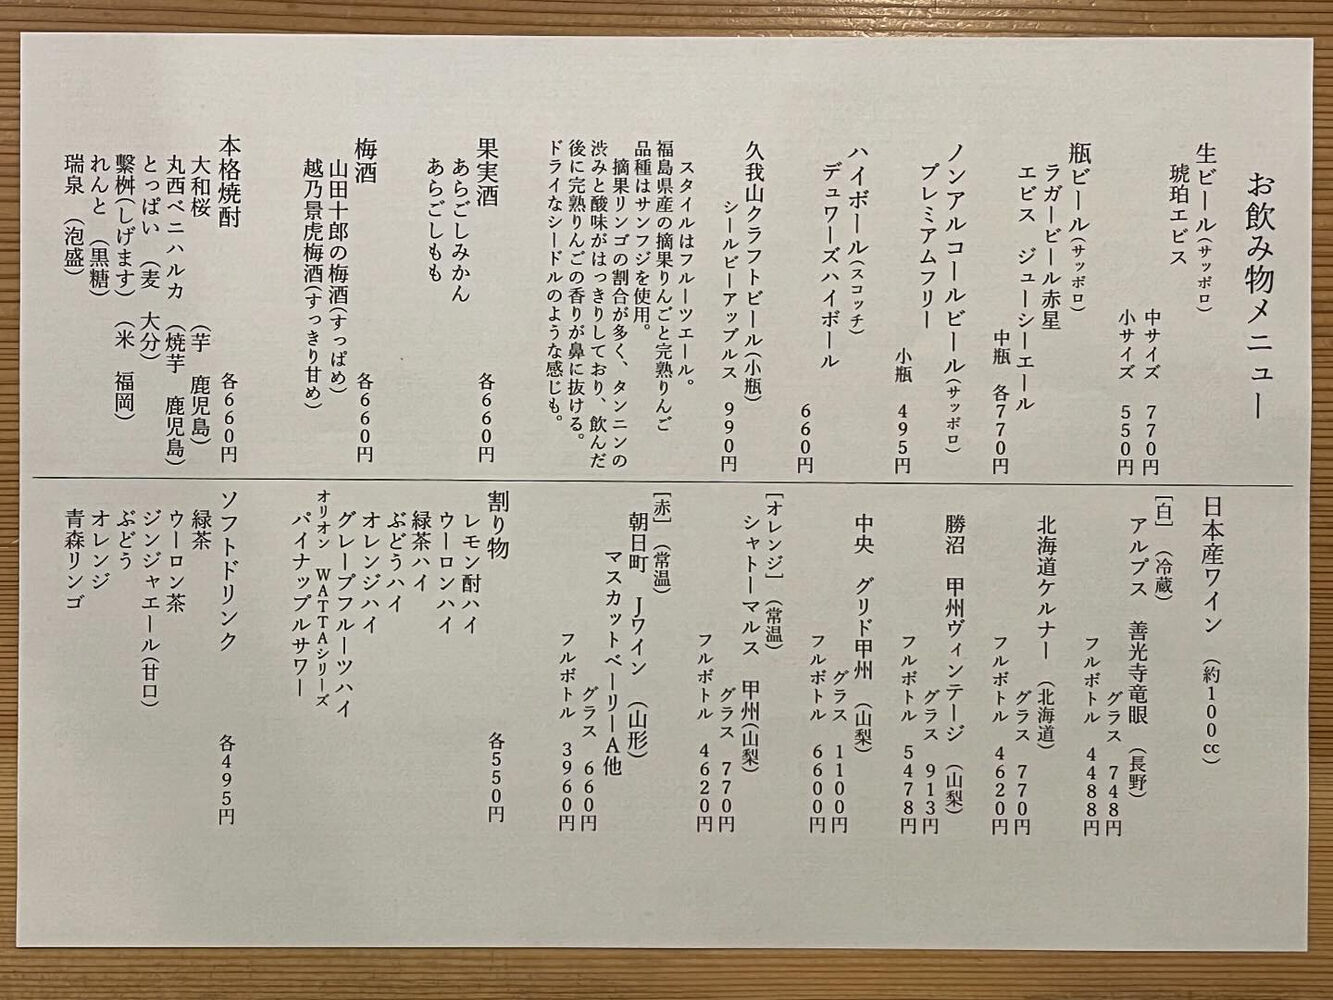 お飲み物メニュー
生ビール(サッポロ)
琥珀ヱビス
中サイズ 770円
小サイズ 550円
瓶ビール(サッポロ)
ラガービール赤星
エビス ジューシーエール
中瓶 各770円
ノンアルコールビール(サッポロ)
プレミアムフリー
小瓶 495円
ハイボール(スコッチ)
デュワーズハイボール
660円
久我山クラフトビール(小瓶)
シールビーアップルス 990円
スタイルはフルーツエール。
福島県産の摘果りんごと完熟りんご
品種はサンフジを使用。
摘果リンゴの割合が多く、タンニンの
渋みと酸味がはっきりしており、飲んだ
後に完熟りんごの香りが鼻に抜ける。
ドライなシードルのような感じも。
果実酒 各660円
あらごしみかん
あらごしもも
梅酒 各660円
山田十郎の梅酒(すっぱめ)
越乃景虎梅酒(すっきり甘め)
本格焼酎 各660円
大和桜 (芋 鹿児島)
丸西ベニハルカ (焼芋 鹿児島)
とっぱい (麦 大分)
繋桝(しげます) (米 福岡)
れんと (黒糖)
瑞泉 (泡盛)
日本産ワイン (約100cc)
[白] (冷蔵)
アルプス 善光寺竜眼 (長野)
グラス 748円
フルボトル 4488円
北海道ケルナー (北海道)
グラス 770円
フルボトル 4620円
勝沼 甲州ヴィンテージ (山梨)
グラス 913円
フルボトル 5478円
中央 グリド甲州 (山梨)
グラス 1100円
フルボトル 6600円
[オレンジ] (常温)
シャトーマルス 甲州(山梨)
グラス 770円
フルボトル 4620円
[赤] (常温)
朝日町 Jワイン (山形)
マスカットベーリーA他
グラス 660円
フルボトル 3960円
割り物 各550円
レモン酎ハイ
ウーロンハイ
緑茶ハイ
ぶどうハイ
オレンジハイ
グレープフルーツハイ
オリオン WATTAシリーズ
パイナップルサワー
ソフトドリンク 各495円
緑茶
ウーロン茶
ジンジャエール(甘口)
ぶどう
オレンジ
青森リンゴ